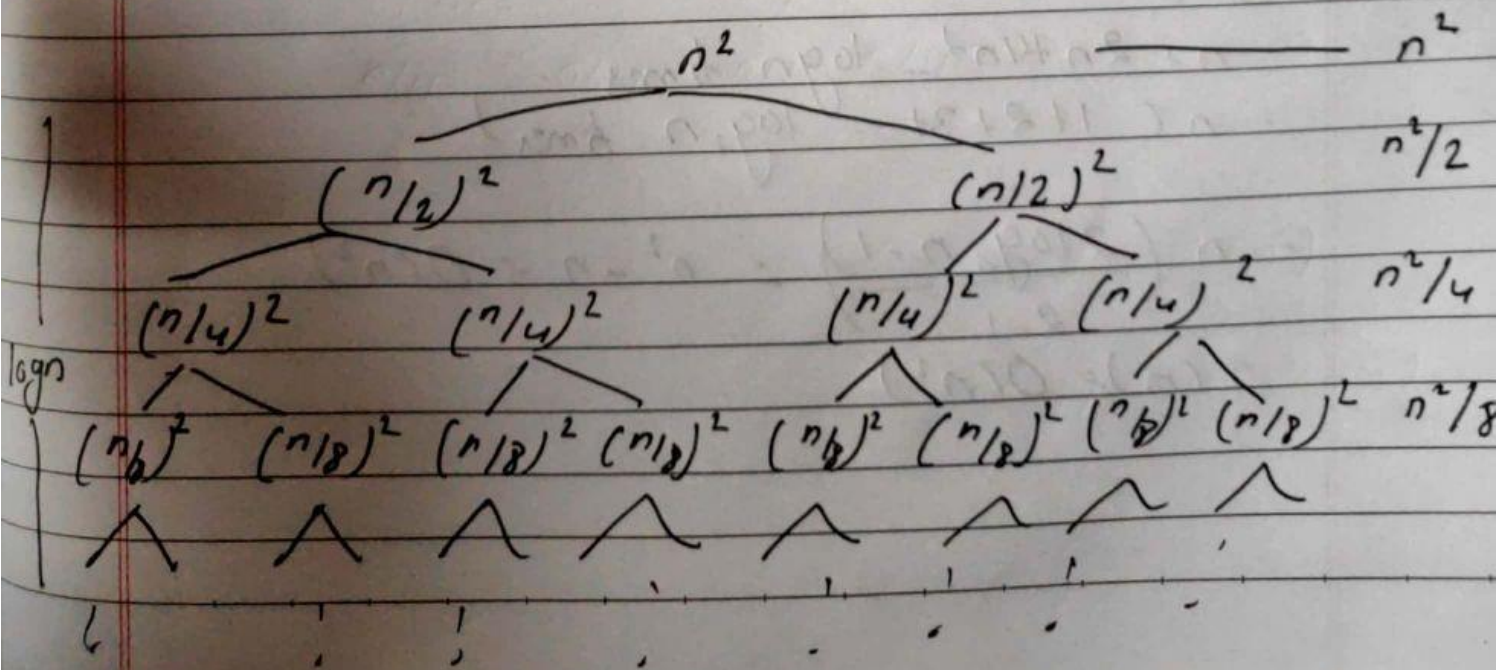 n² n²
(n/2)² (n/2)² n²/2
(n/4)² (n/4)² (n/4)² (n/4)² n²/4
logn
(n/8)² (n/8)² (n/8)² (n/8)² (n/8)² (n/8)² (n/8)² (n/8)² n²/8